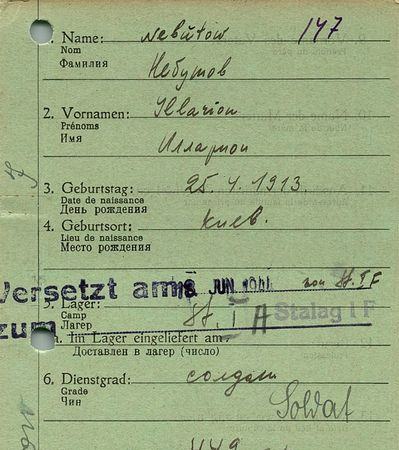 1. Name: Nebutow 147
Nom
Фамилия Небутов
2. Vornamen: Illarion
Prénoms
Имя Илларион
3. Geburtstag: 25. 4. 1913.
Date de naissance
День рождения
4. Geburtsort: Киев.
Lieu de naissance
Место рождения
Versetzt am 18 JUN von St. I F
5. Lager: St. I A Stalag I F
zum
Camp
Лагер
Im Lager eingeliefert am
Доставлен в лагер (число)
6. Dienstgrad: солдат
Grade
Чин Soldat